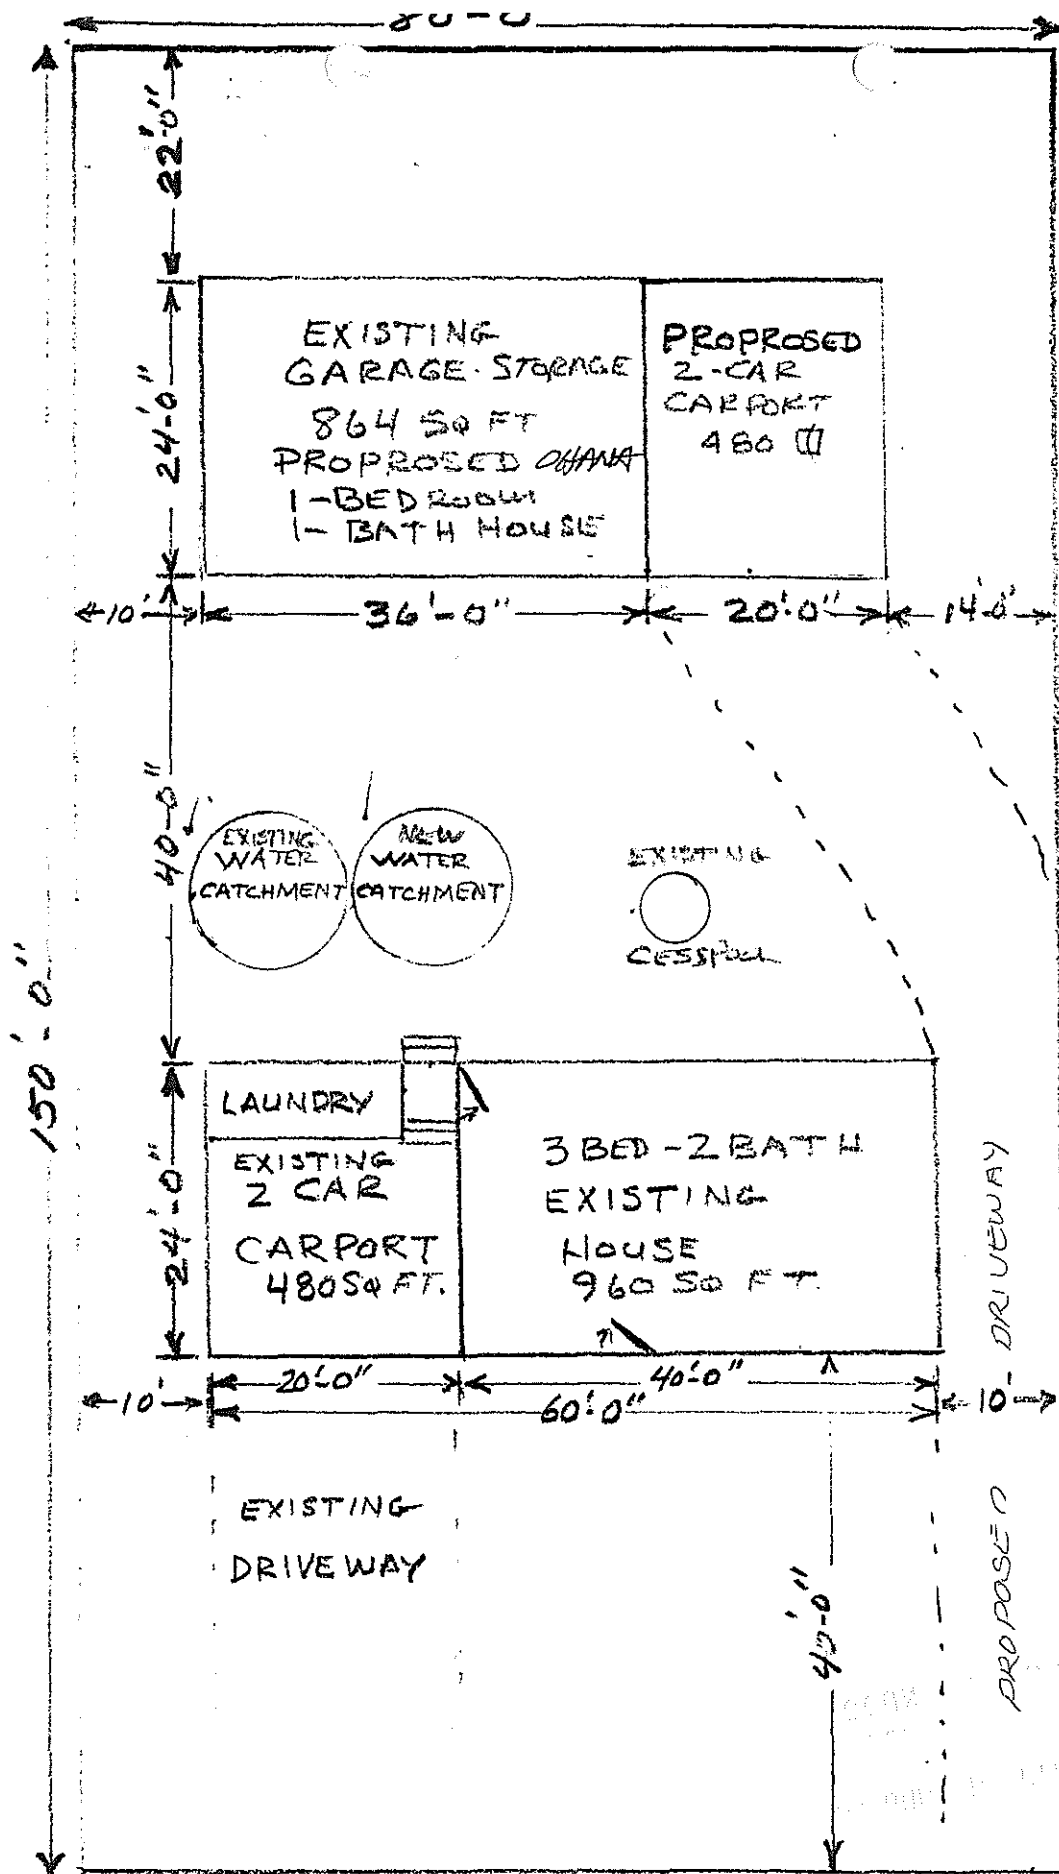 80-0
22'-0"
EXISTING
GARAGE-STORAGE
864 SQ FT
PROPROSED OHANA
1-BEDROOM
1-BATH HOUSE
PROPROSED
2-CAR
CARPORT
480
24'-0"
10'
36'-0"
20'-0"
14'-0'
40'-0"
EXISTING
WATER
CATCHMENT
NEW
WATER
CATCHMENT
EXISTING
CESSPOOL
150'-0"
24'-0"
LAUNDRY
EXISTING
2 CAR
CARPORT
480 SQ FT.
3 BED-2 BATH
EXISTING
HOUSE
960 SQ FT.
PROPOSED 10' DRIVEWAY
10'
20'-0"
40'-0"
60'-0"
EXISTING
DRIVEWAY